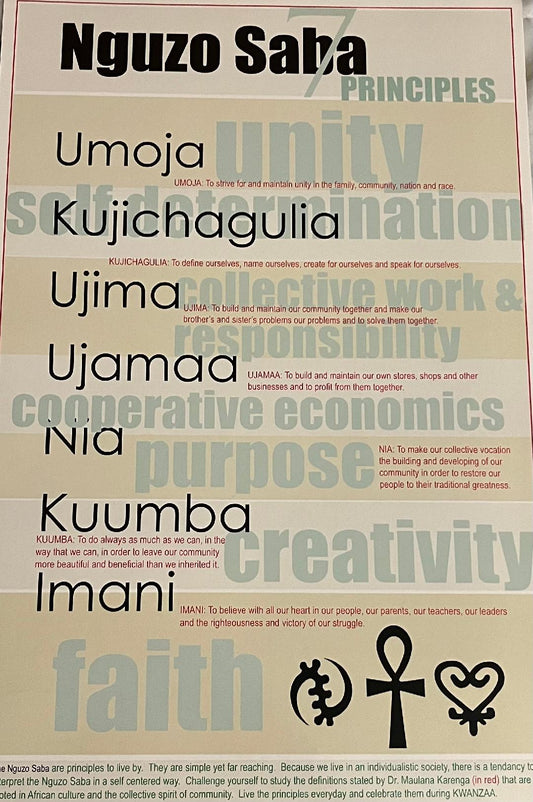 Nguzo Saba
7
PRINCIPLES
Umoja
unity
UMOJA: To strive for and maintain unity in the family, community, nation and race.
self determination
Kujichagulia
KUJICHAGULIA: To define ourselves, name ourselves, create for ourselves and speak for ourselves.
Ujima
collective work &
UJIMA: To build and maintain our community together and make our
brother's and sister's problems our problems and to solve them together.
responsibility
Ujamaa
UJAMAA: To build and maintain our own stores, shops and other
businesses and to profit from them together.
cooperative economics
Nia
purpose
NIA: To make our collective vocation
the building and developing of our
community in order to restore our
people to their traditional greatness.
Kuumba
KUUMBA: To do always as much as we can, in the
way that we can, in order to leave our community
more beautiful and beneficial than we inherited it.
creativity
Imani
IMANI: To believe with all our heart in our people, our parents, our teachers, our leaders
and the righteousness and victory of our struggle.
faith
Nguzo Saba are principles to live by. They are simple yet far reaching. Because we live in an individualistic society, there is a tendency to
the Nguzo Saba in a self centered way. Challenge yourself to study the definitions stated by Dr. Maulana Karenga (in red) that are
in African culture and the collective spirit of community. Live the principles everyday and celebrate them during KWANZAA.